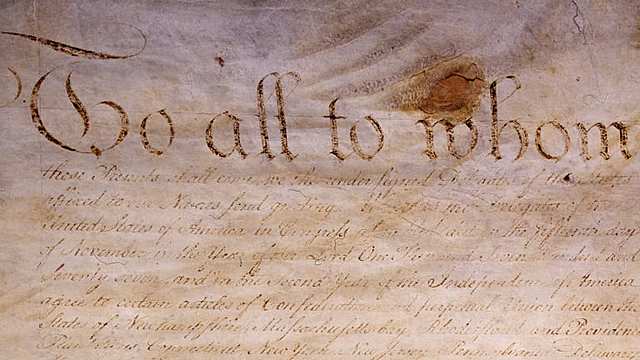 To all to whom
these Presents shall come, we the under signed Delegates of the States
affixed to our Names send greeting. Whereas the Delegates of the
United States of America in Congress assembled did on the fifteenth day
of November in the Year of our Lord One Thousand Seven Hundred and
Seventy seven, and in the Second Year of the Independence of America
agree to certain articles of Confederation and perpetual Union between the
States of Newhampshire, Massachusetts-bay, Rhodeisland and Providence
Connecticut, New York, New Jersey, Pennsylvania, Delaware